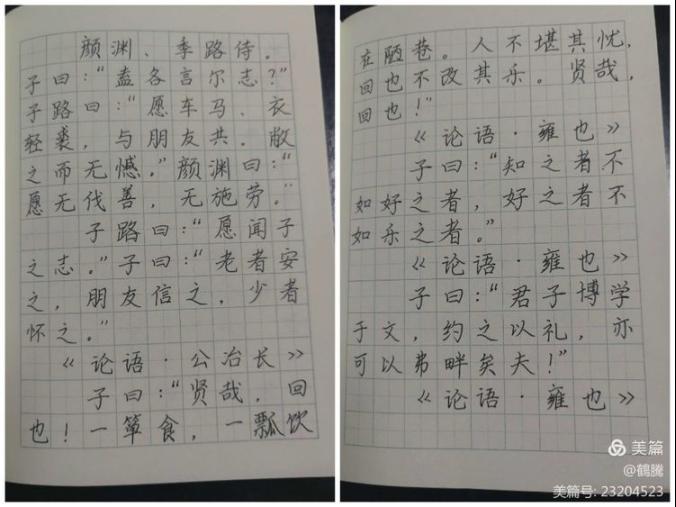 颜渊、季路侍。
子曰：“盍各言尔志？”
子路曰：“愿车马、衣
轻裘，与朋友共。敝
之而无憾。”颜渊曰：“
愿无伐善，无施劳。”
子路曰：“愿闻子
之志。”子曰：“老者安
之，朋友信之，少者
怀之。”
《论语·公冶长》
子曰：“贤哉，回
也！一箪食，一瓢饮
在陋巷。人不堪其忧，
回也不改其乐。贤哉，
回也！”
《论语·雍也》
子曰：“知之者不
如好之者，好之者不
如乐之者。”
《论语·雍也》
子曰：“君子博学
于文，约之以礼，亦
可以弗畔矣夫！”
《论语·雍也》
美篇
@鹤腾
美篇号: 23204523